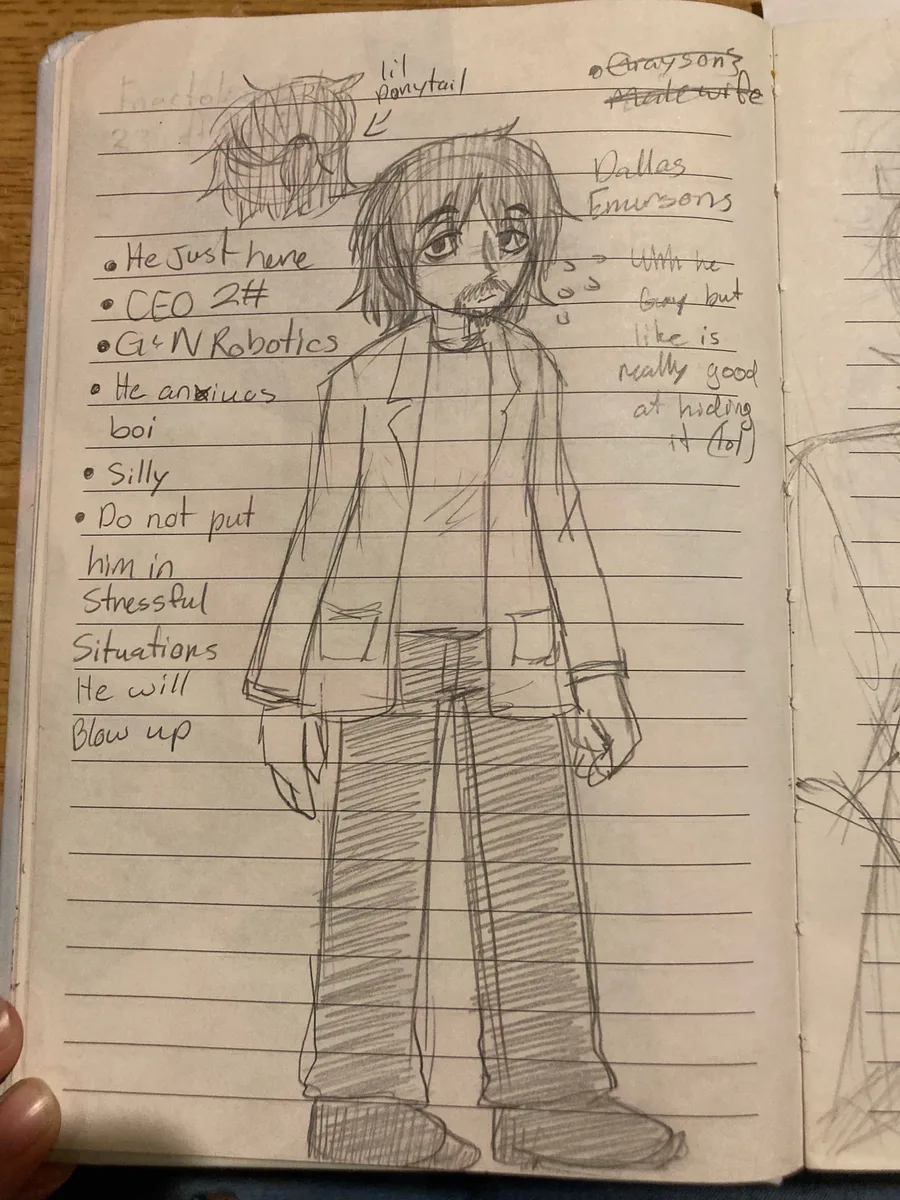 lil
ponytail
• Grayson's
Malewife
Dallas
Emursons
• He Just here
• CEO 2#
• G&N Robotics
• He anxiuos
boi
• Silly
• Do not put
him in
Stressful
Situations
He will
Blow up
he
Guy but
like is
really good
at hiding
it (lol)